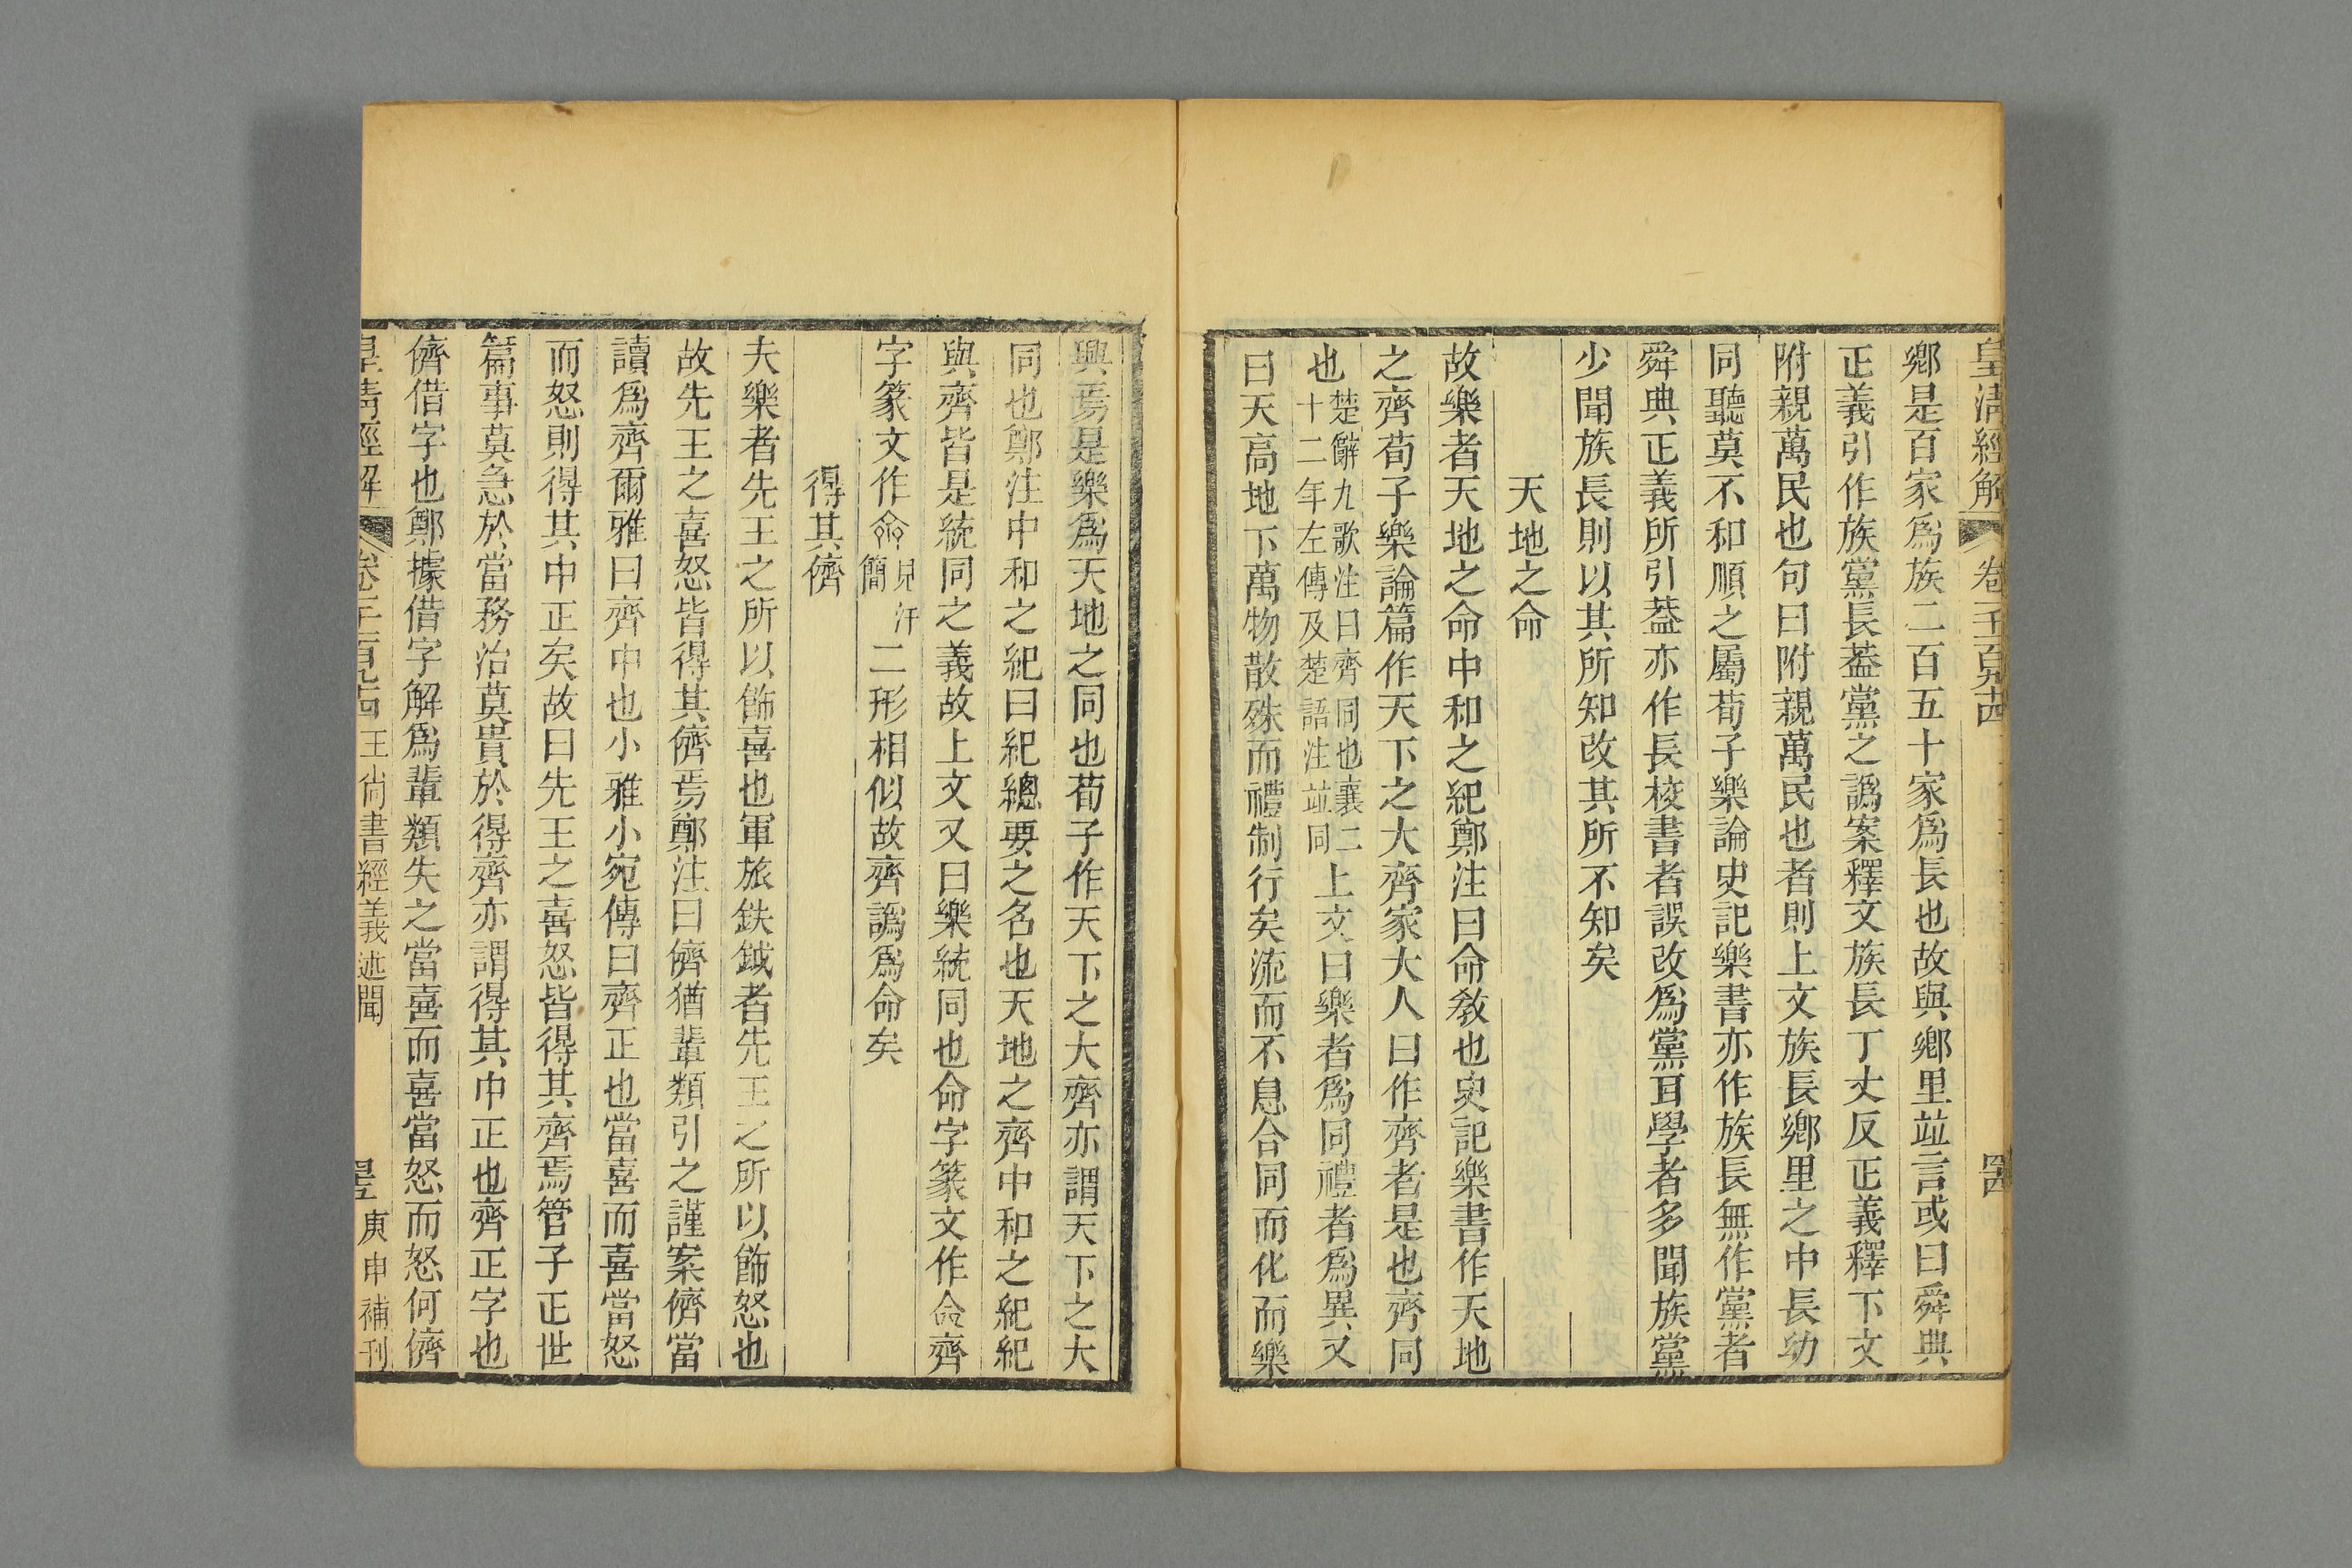 皇清經解 卷千二百九十四
鄉是百家爲族二百五十家爲長也故與鄉里竝言或曰舜典
正義引作族黨長葢黨之譌案釋文族長丁丈反正義釋下文
附親萬民也句曰附親萬民也者則上文族長鄉里之中長幼
同聽莫不和順之屬荀子樂論史記樂書亦作族長無作黨者
舜典正義所引葢亦作長校書者誤改爲黨耳學者多聞族黨
少聞族長則以其所知改其所不知矣
天地之命
故樂者天地之命中和之紀鄭注曰命敎也史記樂書作天地
之齊荀子樂論篇作天下之大齊家大人曰作齊者是也齊同
也楚辭九歌注曰齊同也襄二十二年左傳及楚語注竝同上文曰樂者爲同禮者爲異又
曰天高地下萬物散殊而禮制行矣流而不息合同而化而樂
興焉是樂爲天地之同也荀子作天下之大齊亦謂天下之大
同也鄭注中和之紀曰紀總要之名也天地之齊中和之紀紀
與齊皆是統同之義故上文又曰樂統同也命字篆文作命齊
字篆文作見汗簡二形相似故齊譌爲命矣
得其儕
夫樂者先王之所以飾喜也軍旅鈇鉞者先王之所以飾怒也
故先王之喜怒皆得其儕焉鄭注曰儕猶輩類引之謹案儕當
讀爲齊爾雅曰齊中也小雅小宛傳曰齊正也當喜而喜當怒
而怒則得其中正矣故曰先王之喜怒皆得其齊焉管子正世
篇事莫急於當務治莫貴於得齊亦謂得其中正也齊正字也
儕借字也鄭據借字解爲輩類失之當喜而喜當怒而怒何儕
皇清經解 卷千二百九十四 王尚書經義述聞 庚申補刊